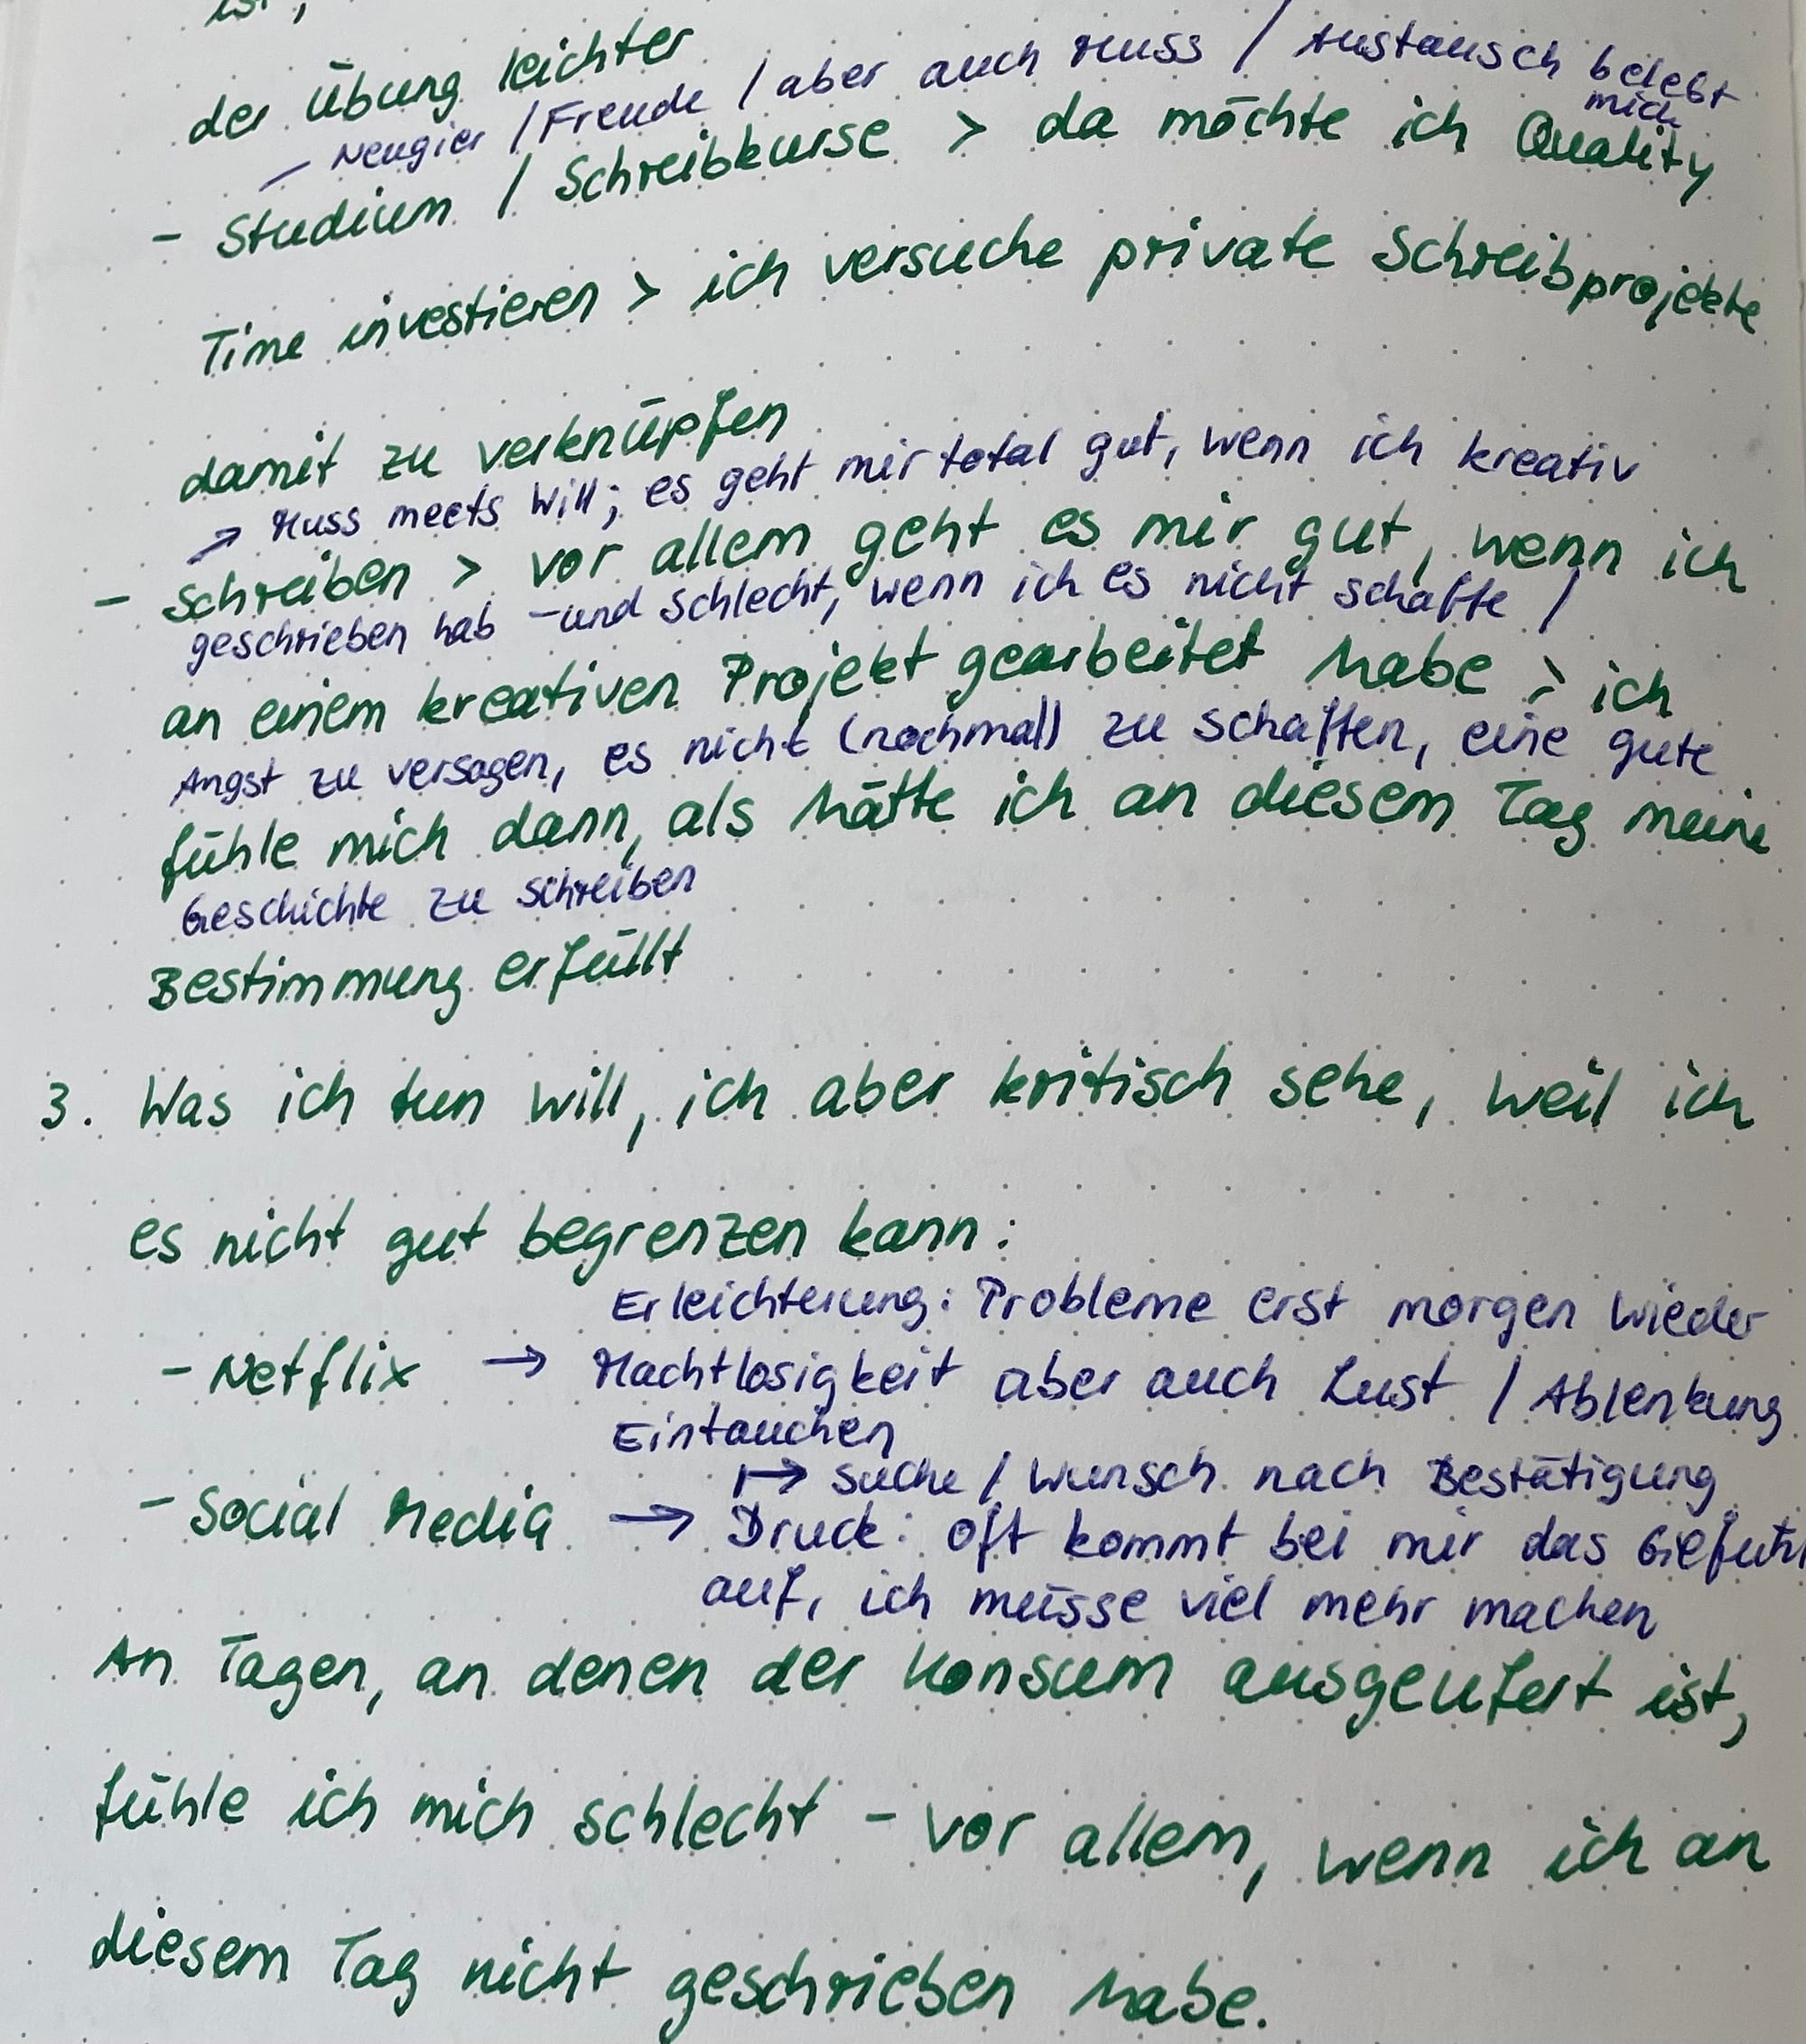 ist,
der Übung leichter
– Neugier / Freude / aber auch Muss / Austausch belebt
mich
– Studium / Schreibkurse > da möchte ich Quality
Time investieren > ich versuche private Schreibprojekte
damit zu verknüpfen
→ Muss meets Will; es geht mir total gut, wenn ich kreativ
– Schreiben > vor allem geht es mir gut, wenn ich
geschrieben hab – und schlecht, wenn ich es nicht schaffe /
an einem kreativen Projekt gearbeitet habe > ich
Angst zu versagen, es nicht (nochmal) zu schaffen, eine gute
fühle mich dann, als hätte ich an diesem Tag meine
Geschichte zu schreiben
Bestimmung erfüllt
3. Was ich tun will, ich aber kritisch sehe, weil ich
es nicht gut begrenzen kann:
Erleichterung: Probleme erst morgen wieder
– Netflix → Machtlosigkeit aber auch Lust / Ablenkung
Eintauchen
↦ Suche / Wunsch nach Bestätigung
– Social Media → Druck: oft kommt bei mir das Gefühl
auf, ich müsse viel mehr machen
An Tagen, an denen der Konsum ausgeufert ist,
fühle ich mich schlecht – vor allem, wenn ich an
diesem Tag nicht geschrieben habe.